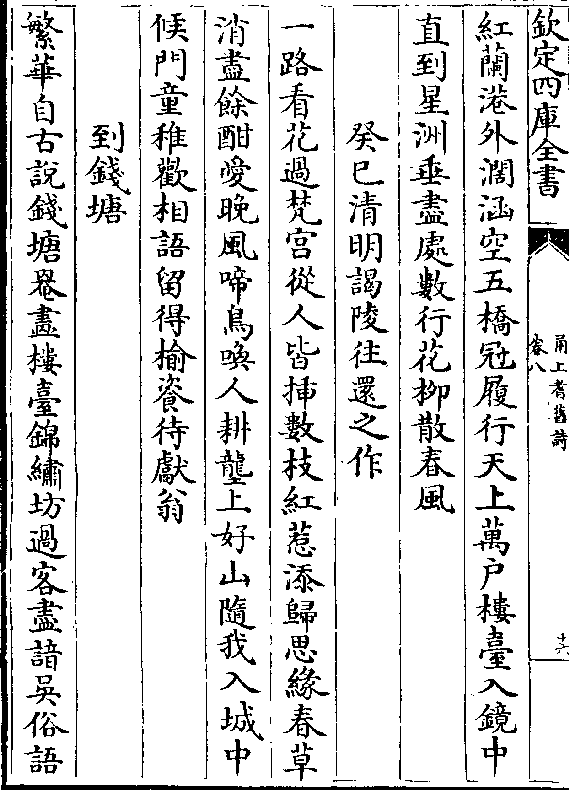 欽定四庫全書
甬上耆舊詩
卷八
十六
紅蘭港外濶涵空五橋冠履行天上萬户樓臺入鏡中
直到星洲垂盡處數行花柳散春風
癸巳清明謁陵往還之作
一路看花過梵宫從人皆揷數枝紅惹添歸思緣春草
消盡餘酣愛晚風啼鳥喚人耕壟上好山隨我入城中
候門童稚歡相語留得榆餈待獻翁
到錢塘
繁華自古説錢塘罨畫樓臺錦繡坊過客盡諳吳俗語